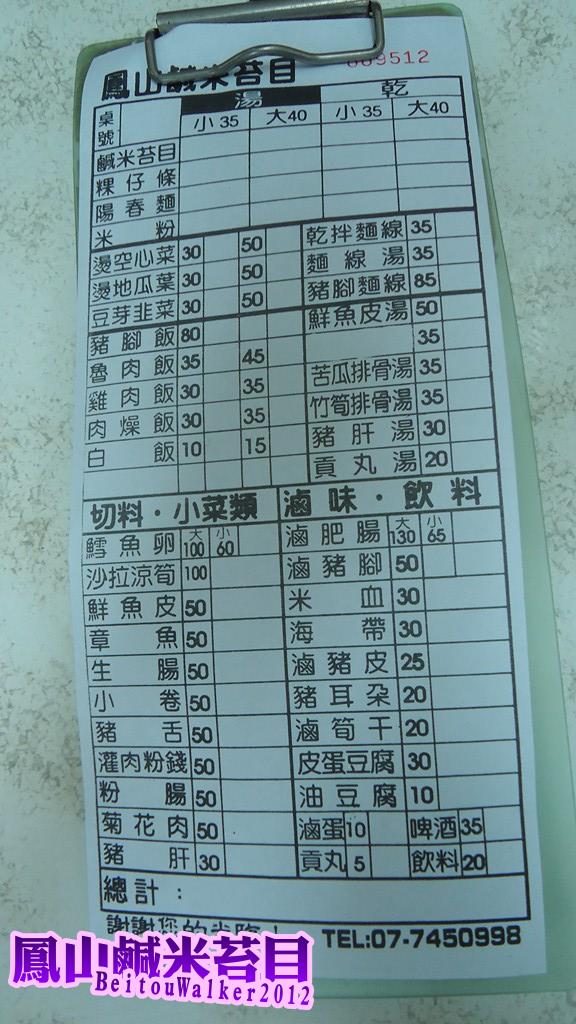 鳳山鹹米苔目 009512
桌號 湯 乾
小35 大40 小35 大40
鹹米苔目
粿仔條
陽春麵
米粉
燙空心菜 30 50 乾拌麵線 35
燙地瓜葉 30 50 麵線湯 35
豆芽韭菜 30 50 豬腳麵線 85
豬腳飯 80 鮮魚皮湯 50
魯肉飯 35 45 35
雞肉飯 30 35 苦瓜排骨湯 35
肉燥飯 30 35 竹筍排骨湯 35
白飯 10 15 豬肝湯 30
貢丸湯 20
切料・小菜類 滷味・飲料
鱈魚卵 大100 小60 滷肥腸 大130 小65
沙拉涼筍 100 滷豬腳 50
鮮魚皮 50 米血 30
章魚 50 海帶 30
生腸 50 滷豬皮 25
小卷 50 豬耳朵 20
豬舌 50 滷筍干 20
灌肉粉錢 50 皮蛋豆腐 30
粉腸 50 油豆腐 10
菊花肉 50 滷蛋 10 啤酒 35
豬肝 30 貢丸 5 飲料 20
總計：
謝謝您的光臨！ TEL:07-7450998
鳳山鹹米苔目
BeitouWalker2012